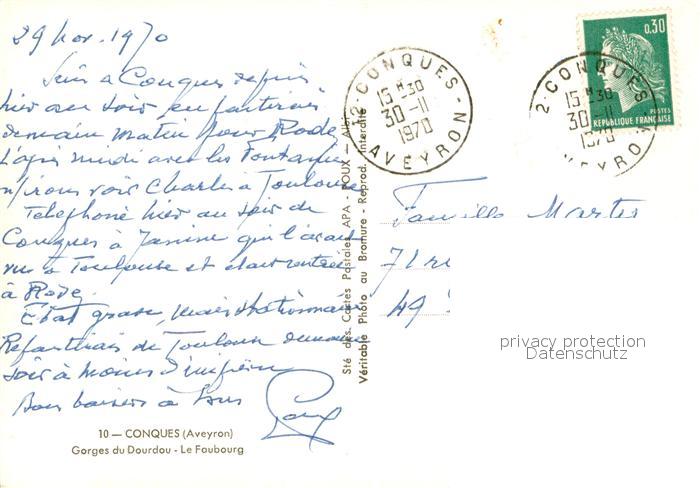 29 Nov. 1970
Suis à Conques depuis
hier au soir en partirai
demain matin pour Rode
L'après midi avec les
n/irons voir Charles à Toulouse
Telephoné hier au soir de
Conques à Janine qui l'avait
vu à Toulouse et était rentrée
à Rode.
État grave, mais stationnaire
Repartirais de Toulouse demain
soir à moins d'imprévu
Bons baisers à tous
10 — CONQUES (Aveyron)
Gorges du Dourdou - Le Faubourg
Sté des Cartes Postales APA - POUX - Albi
Véritable Photo au Bromure - Reprod. Interdite
2 - CONQUES -
15 H 30
30 - 11
1970
AVEYRON
2 - CONQUES
15 H 30
30 - 11
1970
AVEYRON
0,30
POSTES
REPUBLIQUE FRANÇAISE
Famille
71
49
privacy protection
Datenschutz